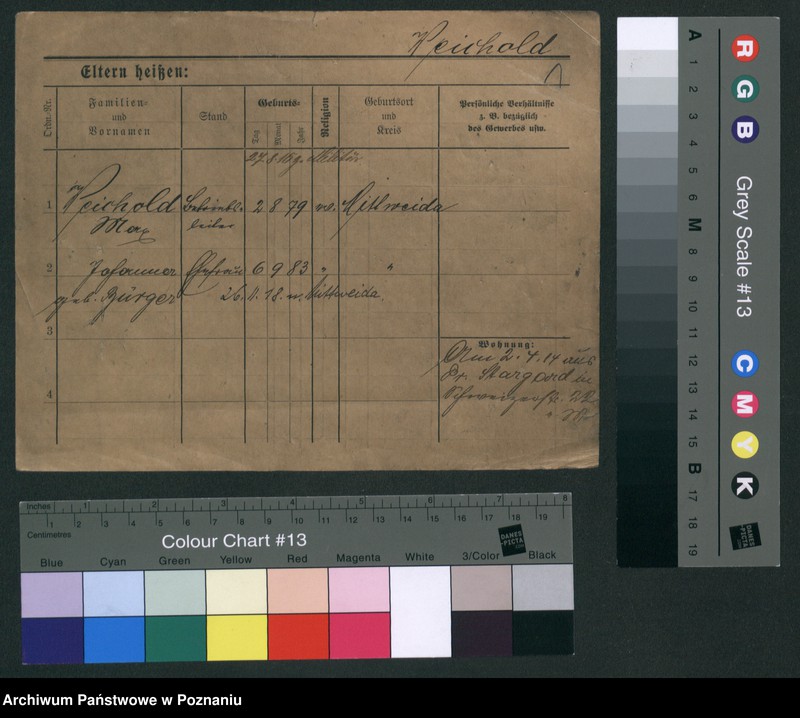 Reichold
Eltern heißen:
Ordn.-Nr.
Familien-
und
Vornamen
Stand
Geburts-
Tag
Monat
Jahr
Religion
Geburtsort
und
Kreis
Persönliche Verhältnisse
z. B. bezüglich
des Gewerbes usw.
27.8.16 z. Militär
1 Reichold 2 8 79 Mittweida
Max
2 Johanna Ehefrau 6 9 83 " "
geb. Bürger 26. 11. 18. n. Mittweida.
3
4
Wohnung:
Am 2.4.14 aus
Pr. Stargard in
Inches 1 2 3 4 5 6 7 8
Centimetres 1 2 3 4 5 6 7 8 9 10 11 12 13 14 15 16 17 18 19
Colour Chart #13
DANES
PICTA
.COM
Blue Cyan Green Yellow Red Magenta White 3/Color Black
A 1 2 3 4 5 6 M 8 9 10 11 12 13 14 15 B 17 18 19
R G B
Grey Scale #13
C M Y K
DANES
PICTA
.COM
Archiwum Państwowe w Poznaniu